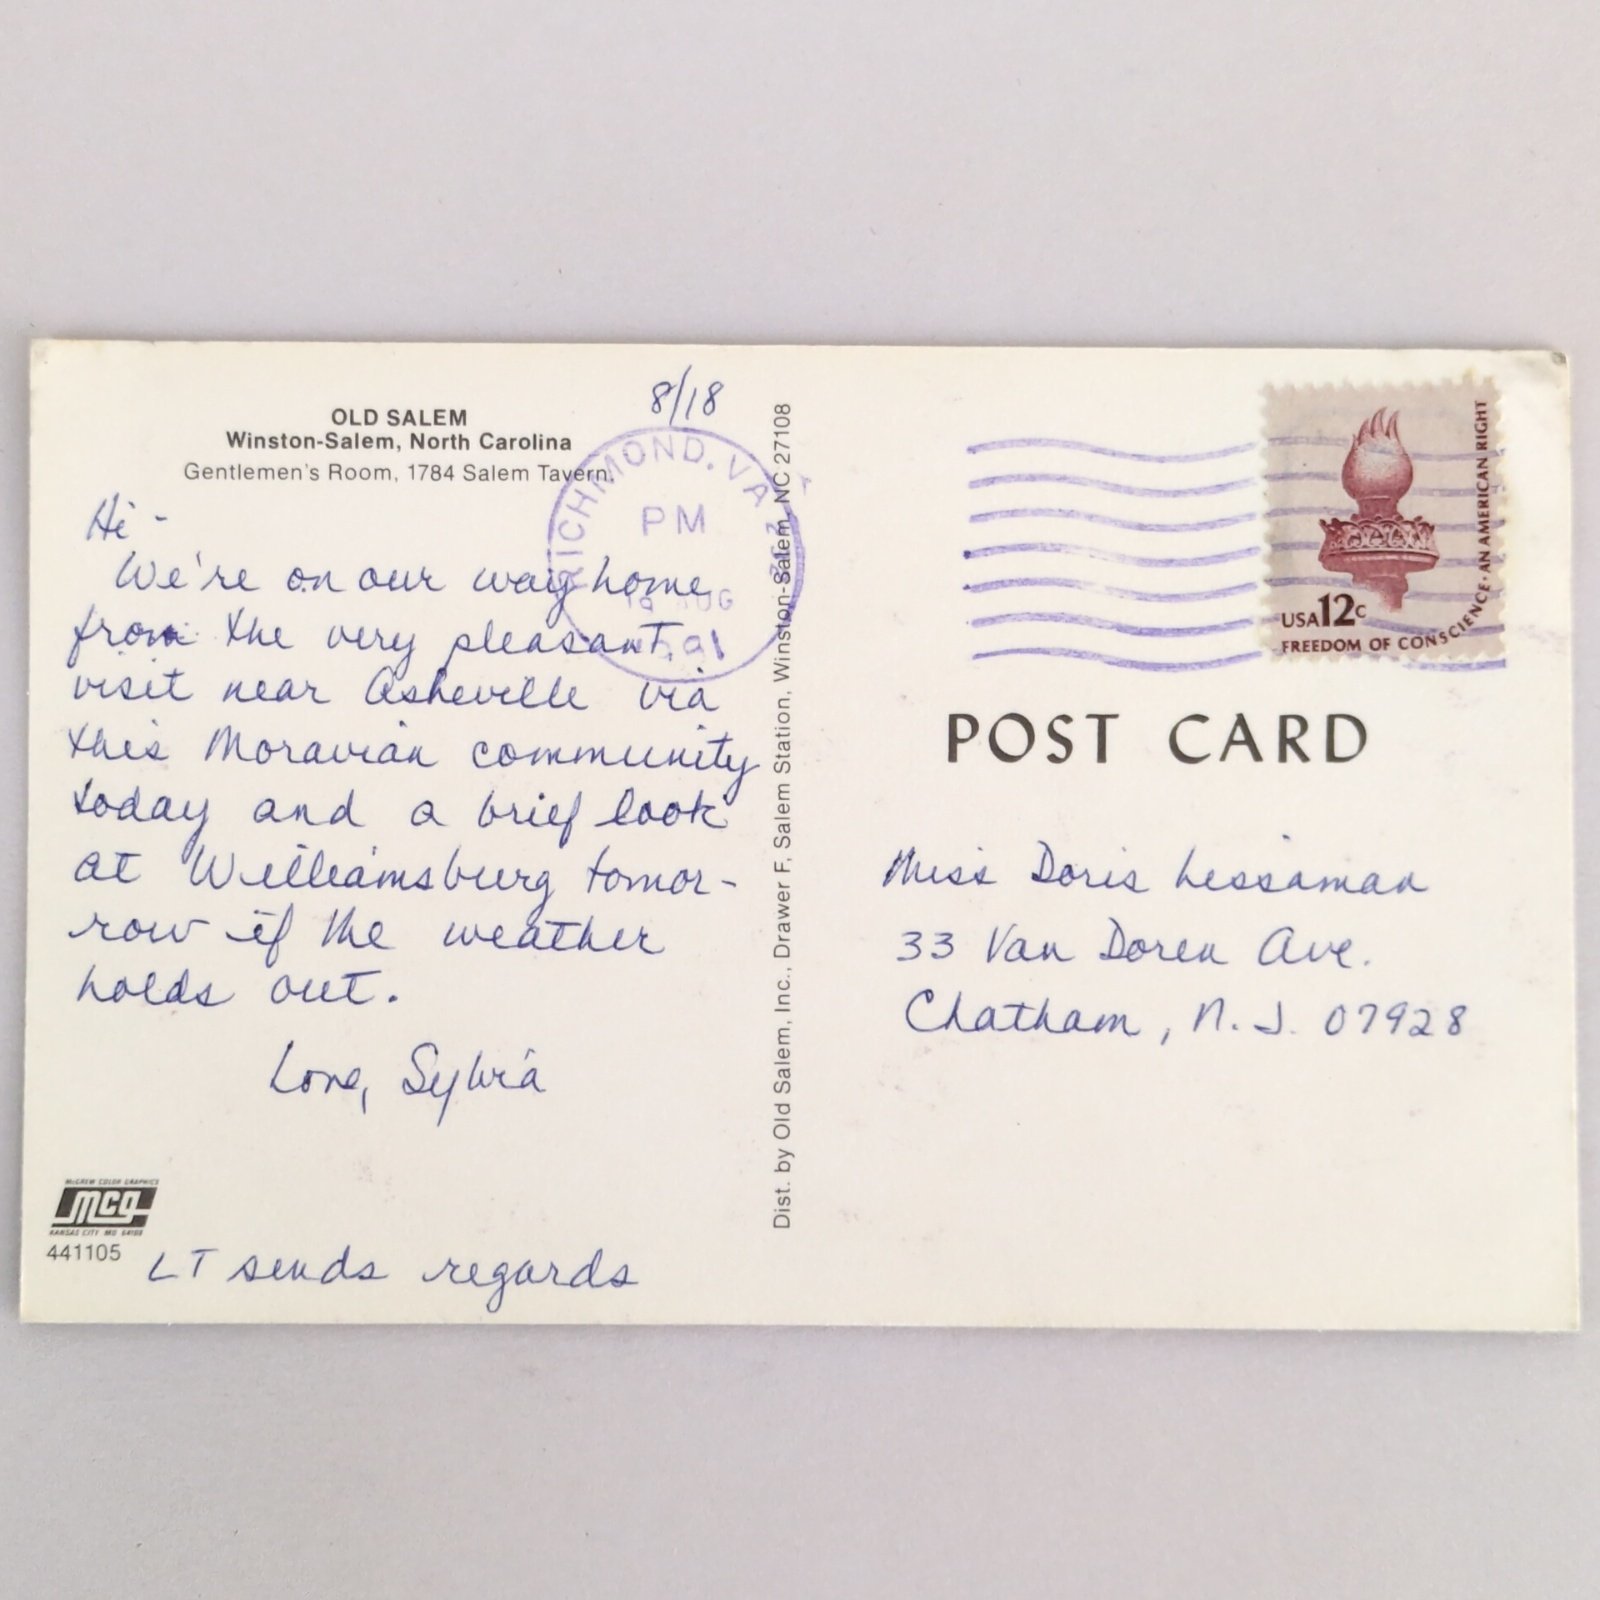 8/18
OLD SALEM
Winston-Salem, North Carolina
Gentlemen's Room, 1784 Salem Tavern.
Hi -
We're on our way home
from the very pleasant
visit near Asheville via
this Moravian community
today and a brief look
at Williamsburg tomor-
row if the weather
holds out.
Love, Sylvia
McGREW COLOR GRAPHICS
mcg
KANSAS CITY MO 64108
441105
LT sends regards
RICHMOND, VA
PM
19 AUG
Dist. by Old Salem, Inc., Drawer F, Salem Station, Winston-Salem, NC 27108
USA 12c
FREEDOM OF CONSCIENCE · AN AMERICAN RIGHT
POST CARD
Miss Doris Lissaman
33 Van Doren Ave.
Chatham, N.J. 07928